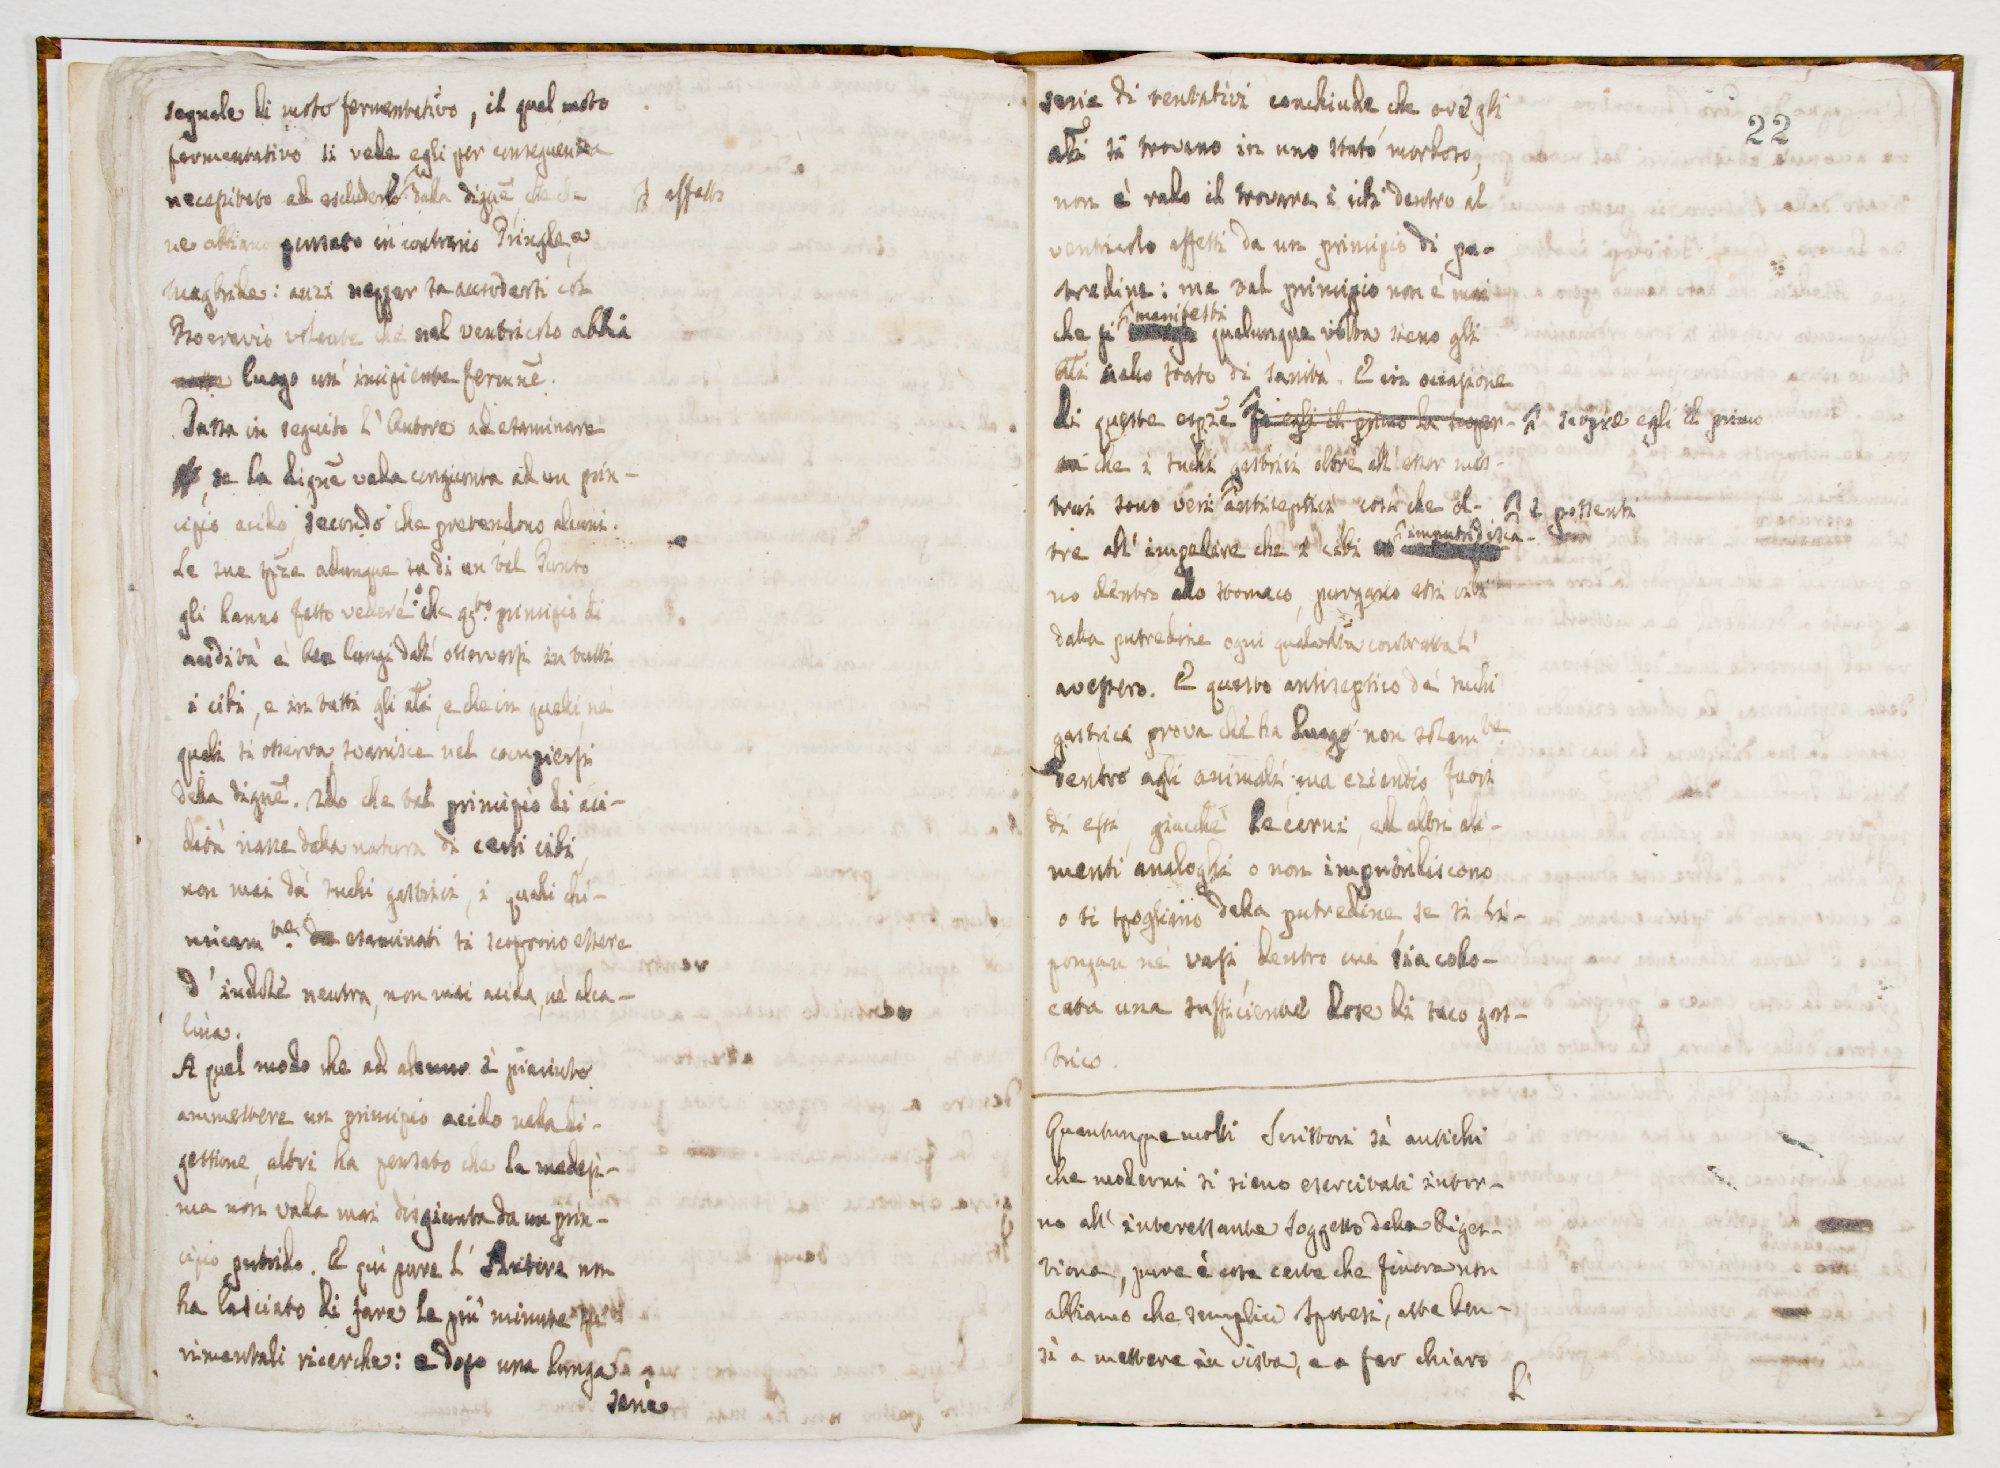 segnale di moto fermentativo, il qual moto
fermentativo si vede egli per conseguenza
necessitato ad escluderlo dalla digne͂, che che
affatto
ne abbiano pensato in contrario Pringle, e
Magbride: anzi neppur sa accordarsi col
Boeravio volente che nel ventricolo abbia
luogo un' incipiente fermne͂.
Passa in seguito l'Autore ad esaminare
se la digne͂ vada congiunta ad un prin-
cipio acido, secondo che pretendono alcuni.
Le sue spze͂ adunque su di un tal Punto
gli hanno fatto vedere: che qsto. principio di
acidità è ben lungi dall' osservarsi in tutti
i cibi, e in tutti gli ali͂, e che in quelli, ne'
quali si osserva, svanisce nel compiersi
della digne͂. 2do che tal principio di aci-
dità nasce dalla natura di certi cibi,
non mai da' suchi gastrici, i quali chi-
micamte. esaminati si scoprono essere
d'indole neutra, non mai acida, nè alca-
lina.
A quel modo che ad alcuno è piaciuto
ammettere un principio acido nella di-
gestione, altri ha pensato che la medesi-
ma non vada mai disgiunta da un prin-
cipio putrido. E qui pure l'Autore non
ha lasciato di fare le più minute spe
rimentali ricerche: e dopo una lunga
serie
22
serie di tentativi conchiude che ove gli
ali͂ si trovano in uno stato morboso,
non è rado il trovare i cibi dentro al
ventricolo affetti da un principio di pu-
tredine: ma tal principio non è mai
manifesti
che si qualunque volta sieno gli
ali͂ nello stato di sanità. E in occasione
di queste espze͂ fu egli il primo ha scoper- scopre egli il primo
che i suchi gastrici oltre all'esser mes-
trui sono veri antiseptici così che ol- e possenti
imputridisca-
tre all'impedire che i cibi
no dentro allo stomaco, purgano essi cibi
dalla putredine ogni qualvolta contratta l'
avessero. E questo antiseptico de' suchi
gastrici prova che ha luogo non solamte
dentro agli animali, ma eziandio fuori
di essi, giacchè le carni, ed altri ali-
menti analoghi o non imputridiscono
o si spogliano della putredine, se si ri-
pongan ne' vasi, dentro cui sia collo-
cata una sufficiente dose di suco gas-
trico.
Quantunque molti Scrittori sì antichi
che moderni si sieno esercitati intor-
no all'interessante soggetto della Diges-
tione, pure è cosa certa che finora non
abbiamo che semplici Ipotesi, atte ben-
sì a mettere in vista, e a far chiaro
l'